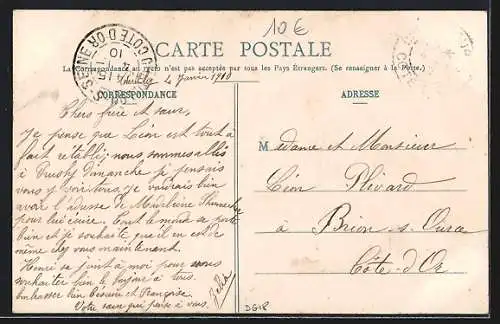 10€
CARTE POSTALE
La Correspondance au recto n'est pas acceptée par tous les Pays Étrangers. (Se renseigner à la Poste.)
4 Janvier 1910
CORRESPONDANCE
ADRESSE
CÔTE D'OR
Chers frère et sœur,
Je pense que Léon est tout à
fait rétabli, nous sommes allés
à Dimanche je pensais
vous y voir tous, je voudrais bien
avoir l'adresse de Madeleine
pour lui écrire. Tout le monde se porte
bien et je souhaite qu'il en est de
même chez vous maintenant.
Henri se joint à moi pour vous
souhaiter bien le bonjour à tous.
Embrasser bien Césaire et Françoise.
Votre sœur qui pense à vous.
Madame et Monsieur
Léon Plivard
à Brion s. Ource
Côte-d'Or